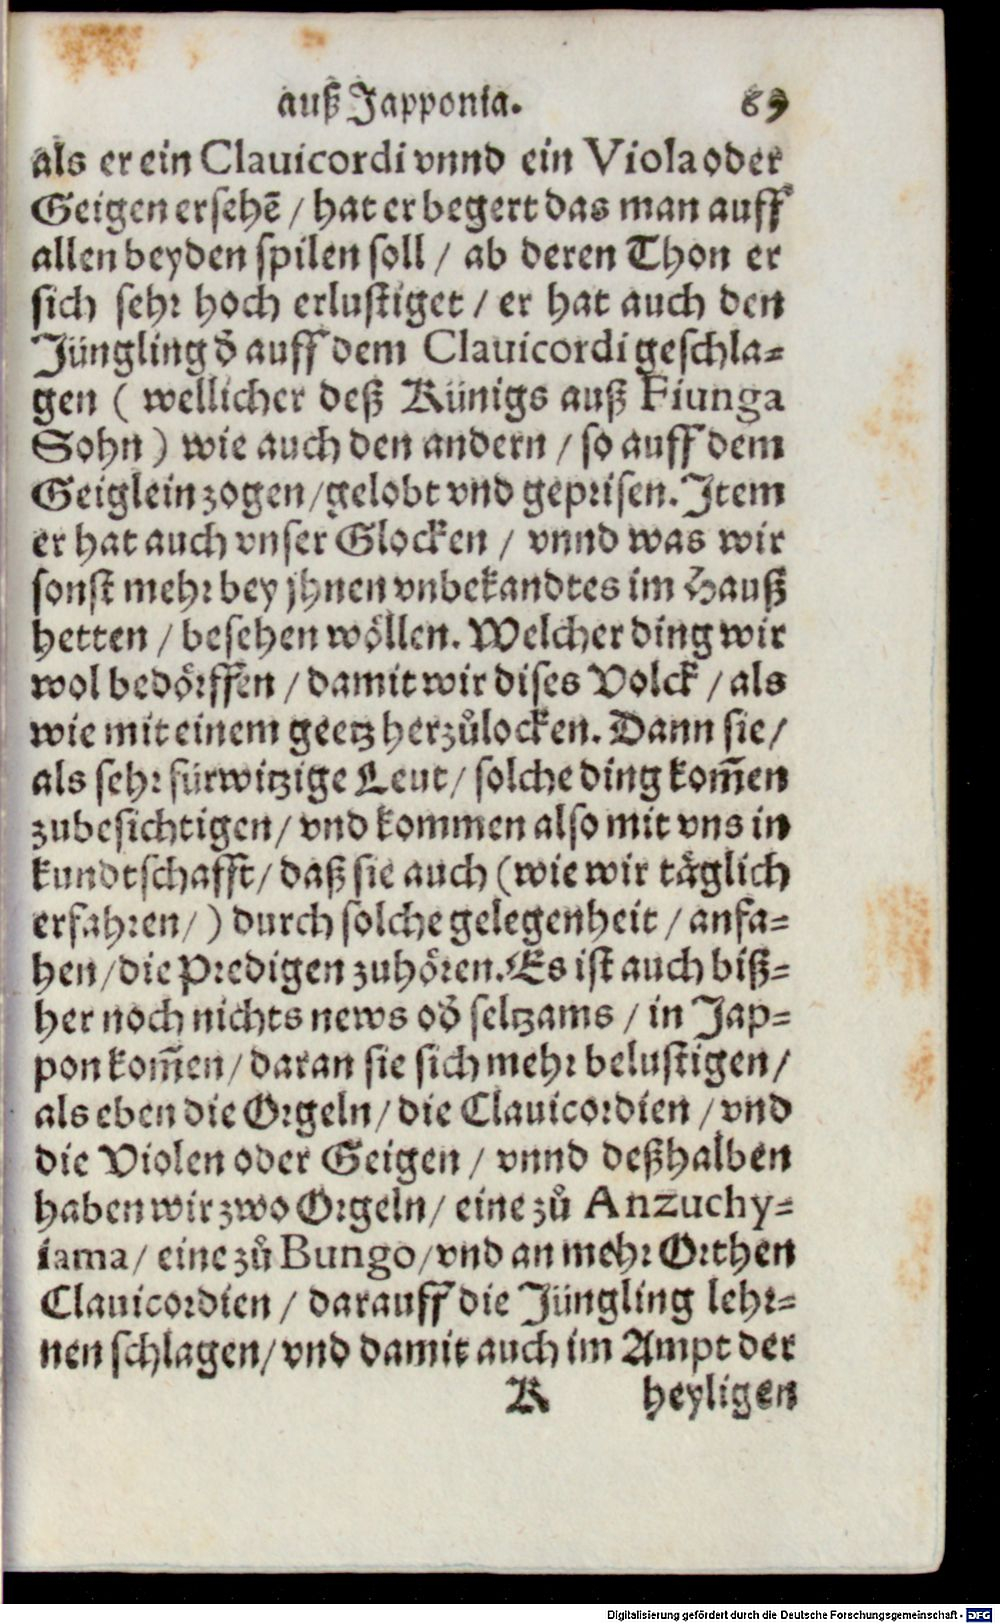 auß Japponia. 69
als er ein Clauicordi vnnd ein Viola oder
Geigen ersehẽ / hat er begert das man auff
allen beyden spilen soll / ab deren Thon er
sich sehr hoch erlustiget / er hat auch den
Jüngling ð auff dem Clauicordi geschla-
gen ( wellicher deß Künigs auß Fiunga
Sohn ) wie auch den andern / so auff dem
Geiglein zogen / gelobt vnd geprisen. Jtem
er hat auch vnser Glocken / vnnd was wir
sonst mehr bey jhnen vnbekandtes im Hauß
hetten / besehen wöllen. Welcher ding wir
wol bedörffen / damit wir dises Volck / als
wie mit einem geetz herzůlocken. Dann sie /
als sehr fürwitzige Leut / solche ding kom̃en
zubesichtigen / vnd kommen also mit vns in
kundtschafft / daß sie auch (wie wir täglich
erfahren / ) durch solche gelegenheit / anfa-
hen / die Predigen zuhören. Es ist auch biß-
her noch nichts news oð seltzams / in Jap-
pon kom̃en / daran sie sich mehr belustigen /
als eben die Orgeln / die Clauicordien / vnd
die Violen oder Geigen / vnnd deßhalben
haben wir zwo Orgeln / eine zů Anzuchy-
iama / eine zů Bungo / vnd an mehr Orthen
Clauicordien / darauff die Jüngling lehr-
nen schlagen / vnd damit auch im Ampt der
K heyligen
Digitalisierung gefördert durch die Deutsche Forschungsgemeinschaft - DFG